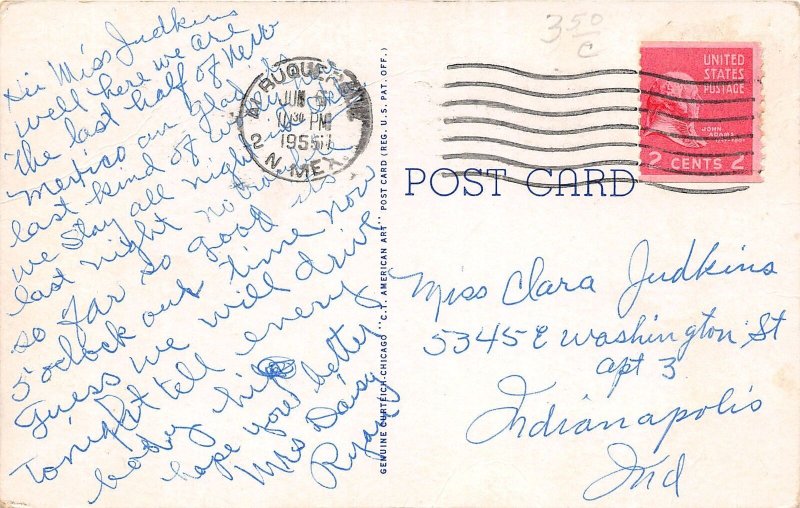 Hi Miss Judkins
well here we are
The last half of New
Mexico our
last kind of
we stay all night
last night no trouble
so far so good its
5 oclock our time now
Guess we will drive
Tonight tell every
body hi
hope your betty
Mrs Daisy
Ryan
ALBUQUERQUE
JUN
PM
1955
2 N. MEX.
GENUINE CURTEICH-CHICAGO "C.T. AMERICAN ART" POST CARD (REG. U.S. PAT. OFF.)
3 50
C
UNITED
STATES
POSTAGE
JOHN
ADAMS
2 CENTS 2
POST CARD
Miss Clara Judkins
5345 E Washington St
apt 3
Indianapolis
Ind